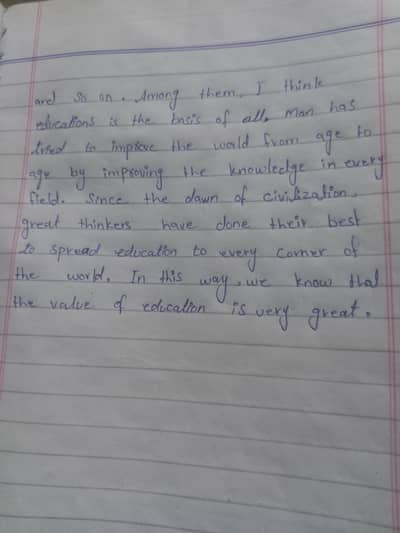 and so on. Among them, I think
educations is the basis of all. Man has
tried to improve the world from age to
age by improving the knowledge in every
field. Since the dawn of civilization,
great thinkers have done their best
to spread education to every corner of
the world. In this way, we know that
the value of education is very great.